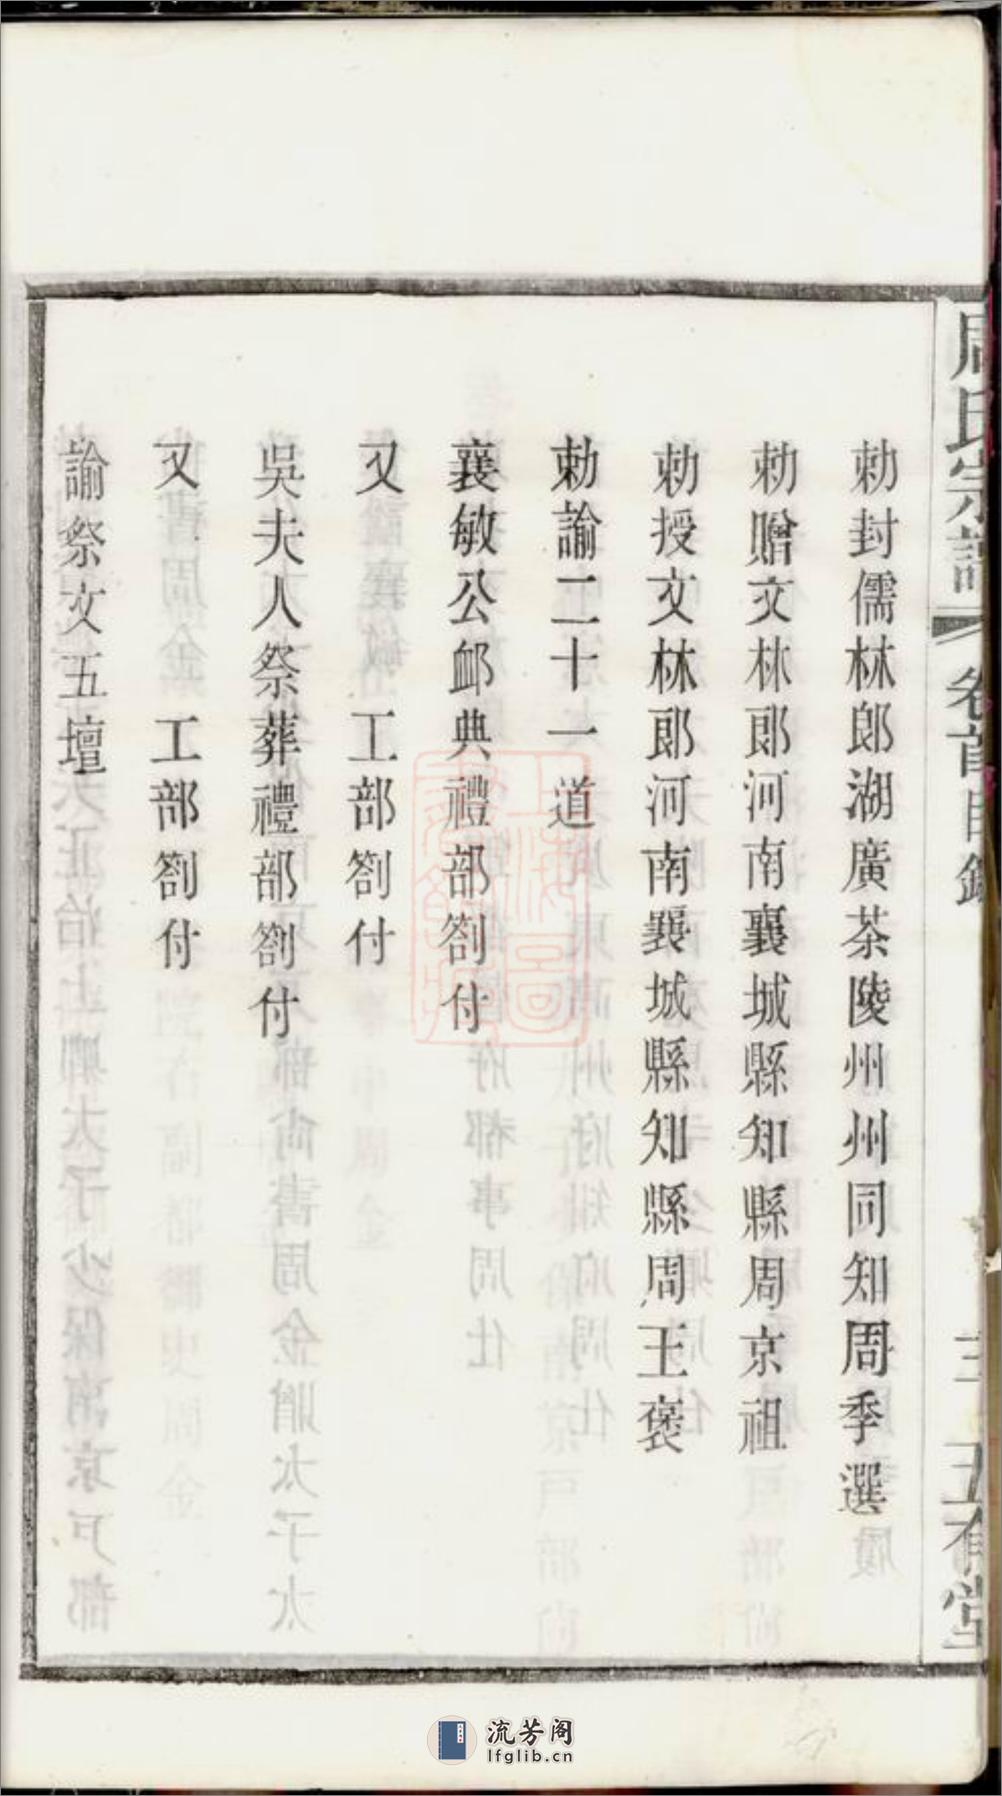 周氏宗譜 卷首目錄 三 五有堂
勅封儒林郎湖廣茶陵州州同知周季選
勅贈文林郎河南襄城縣知縣周京祖
勅授文林郎河南襄城縣知縣周王褒
勅諭二十一道
襄敏公卹典禮部劄付
又 工部劄付
吳夫人祭葬禮部劄付
又 工部劄付
諭祭文五壇
流芳阁
lfglib.cn